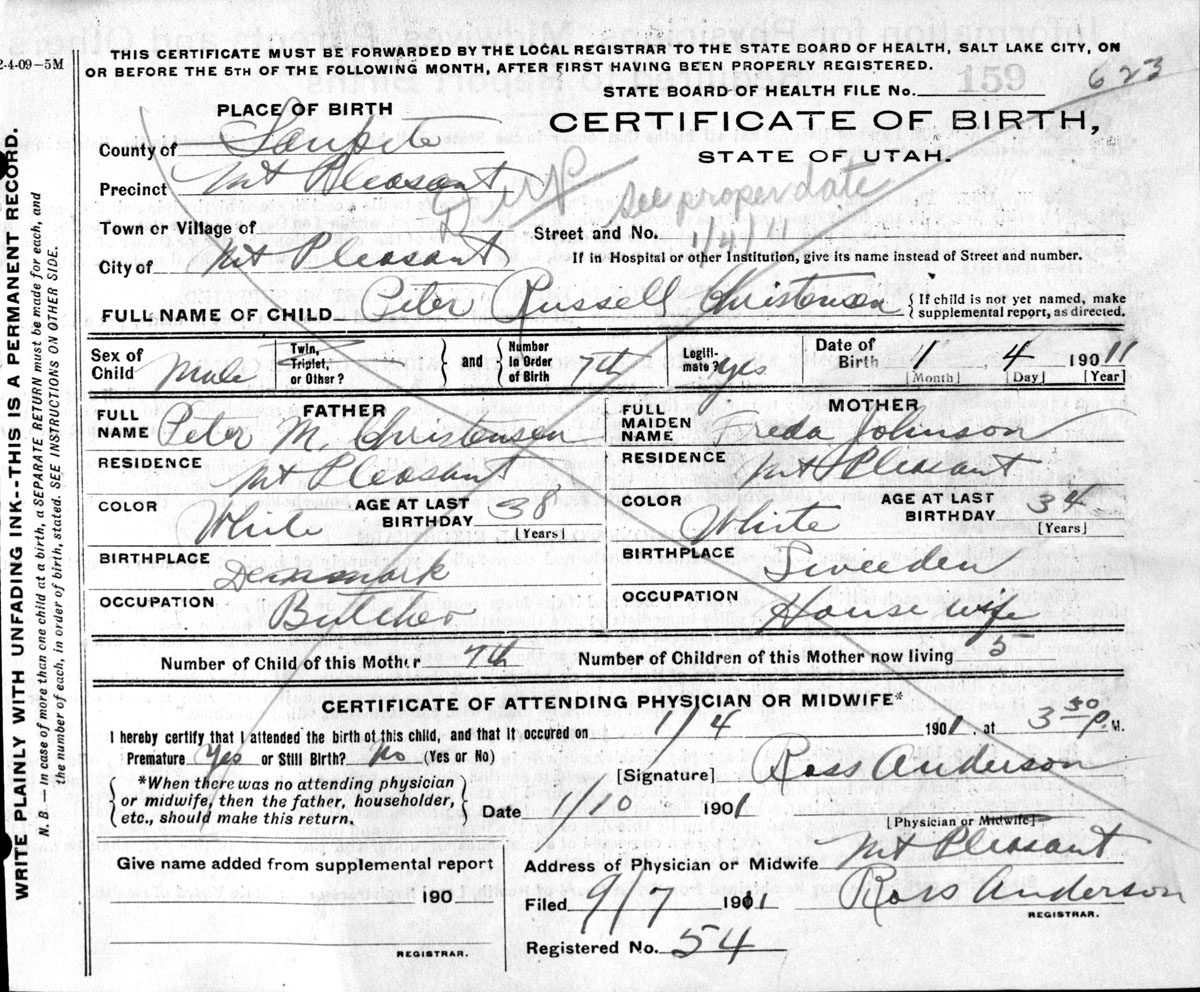 2-4-09-5M
THIS CERTIFICATE MUST BE FORWARDED BY THE LOCAL REGISTRAR TO THE STATE BOARD OF HEALTH, SALT LAKE CITY, ON
OR BEFORE THE 5TH OF THE FOLLOWING MONTH, AFTER FIRST HAVING BEEN PROPERLY REGISTERED.
159
623
STATE BOARD OF HEALTH FILE No.
PLACE OF BIRTH
CERTIFICATE OF BIRTH,
STATE OF UTAH.
County of Sanpete
Precinct Mt Pleasant
Dup
See proper date
1/4/11
Town or Village of
Street and No.
City of Mt Pleasant
If in Hospital or other Institution, give its name instead of Street and number.
FULL NAME OF CHILD Peter Russell Christensen { If child is not yet named, make supplemental report, as directed.
Sex of Child Male Twin, Triplet, or Other? } and { Number in Order of Birth 7th Legiti-mate? yes Date of Birth 1 4 190 11
[Month] [Day] [Year]
FATHER
FULL NAME Peter M. Christensen
RESIDENCE Mt Pleasant
COLOR White AGE AT LAST BIRTHDAY 38 [Years]
BIRTHPLACE Denmark
OCCUPATION Butcher
MOTHER
FULL MAIDEN NAME Freda Johnson
RESIDENCE Mt Pleasant
COLOR White AGE AT LAST BIRTHDAY 34 [Years]
BIRTHPLACE Sweeden
OCCUPATION House wife
Number of Child of this Mother 7th Number of Children of this Mother now living 5
CERTIFICATE OF ATTENDING PHYSICIAN OR MIDWIFE*
I hereby certify that I attended the birth of this child, and that it occured on 1/4 1901, at 3 30 P. M.
Premature Yes or Still Birth? No (Yes or No)
*When there was no attending physician
or midwife, then the father, householder,
etc., should make this return.
[Signature] Ross Anderson
Date 1/10 1901
[Physician or Midwife]
Give name added from supplemental report
190
REGISTRAR.
Address of Physician or Midwife Mt Pleasant
Filed 9/7 1911 Ross Anderson
REGISTRAR.
Registered No. 54
WRITE PLAINLY WITH UNFADING INK--THIS IS A PERMANENT RECORD.
N. B. — In case of more than one child at a birth, a SEPARATE RETURN must be made for each, and
the number of each, in order of birth, stated. SEE INSTRUCTIONS ON OTHER SIDE.